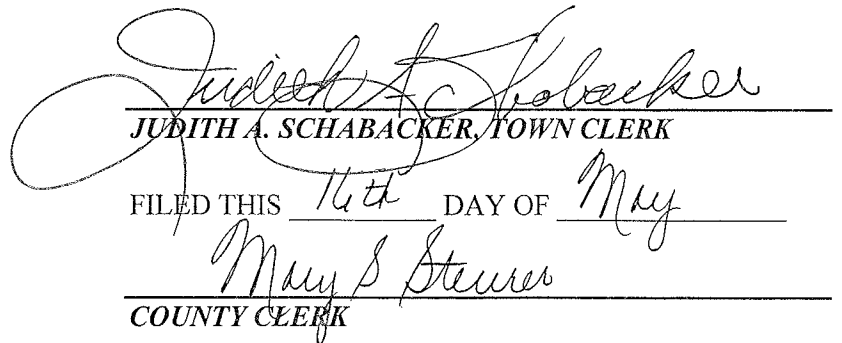 Judith A. Schabacker
JUDITH A. SCHABACKER, TOWN CLERK
FILED THIS 16th DAY OF May
Mary S Steurer
COUNTY CLERK